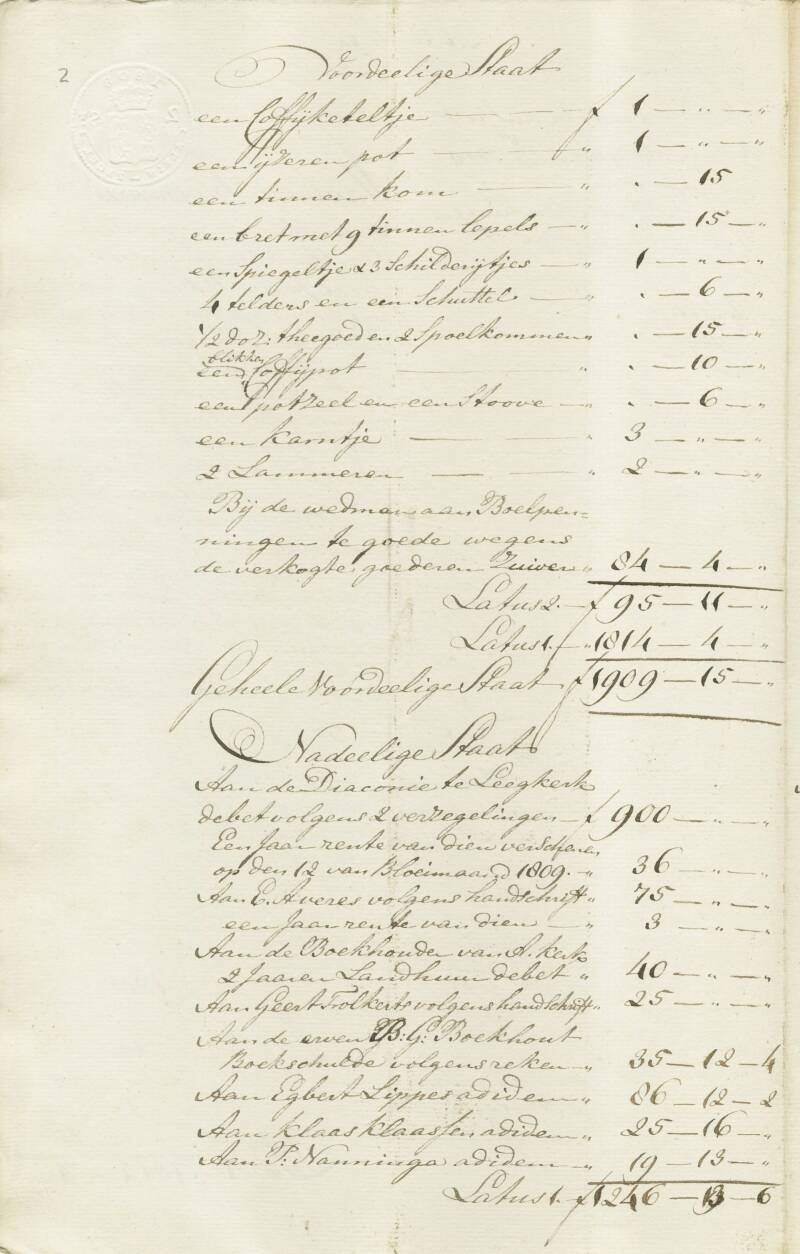 2
Voordeelige Staat
een Coffijketeltje — — f 1 — „ — „
een ijzeren pot — — „ 1 — „ — „
een tinnen kom — „ . — 15
een bret met 9 tinnen lepels — „ . — 15 — „
een Spiegeltje & 3 Schilderijtjes — „ 1 — „ — „
4 telders en een Schuttel — „ . — 6 — „
1/2 doz: theegoed en 2 Spoelkommen „ . — 15 — „
blikken
een Coffijpot — „ . — 10 — „
een potzeel en een Stoove — „ . — 6 — „
een karntje — — „ 3 — „ — „
2 Lammeren — — „ 2 — „ — „
Bij de wedman aan Boelpen-
ningen te goede wegens
de verkogte goederen Zuiver „ 84 — 4 — „
Latus 2. — f 95 — 11 — „
Latus 1. — „ 1814 — 4 — „
Geheele Voordeelige Staat f 1909 — 15 — „
Nadeelige Staat
Aan de Diaconie te Leegkerk
debet volgens 2 verzegelingen — f 900 — „ — „
Een Jaar rente van dien verschenen
op den 12 van Bloeimaand 1809. — „ 36 — „ — „
Aan E. Averes volgens handschrift „ 75 — „ — „
een Jaar rente van dien — „ 3 — „ — „
Aan de Boekhouder van A. kerk
2 Jaaren Landhuur debet „ 40 — „ — „
Aan Geert Folkerts volgens handschrift „ 25 — „ — „
Aan de erven B: G: Boekhout
Boekschulde volgens reken — „ 35 — 12 — 4
Aan Egbert Lippes adidem „ 86 — 12 — 2
Aan Klaas Klaassen adidem „ 25 — 16 — „
Aan P: Nanninga adidem — „ 19 — 13 — „
Latus 1. f 1246 — 13 — 6